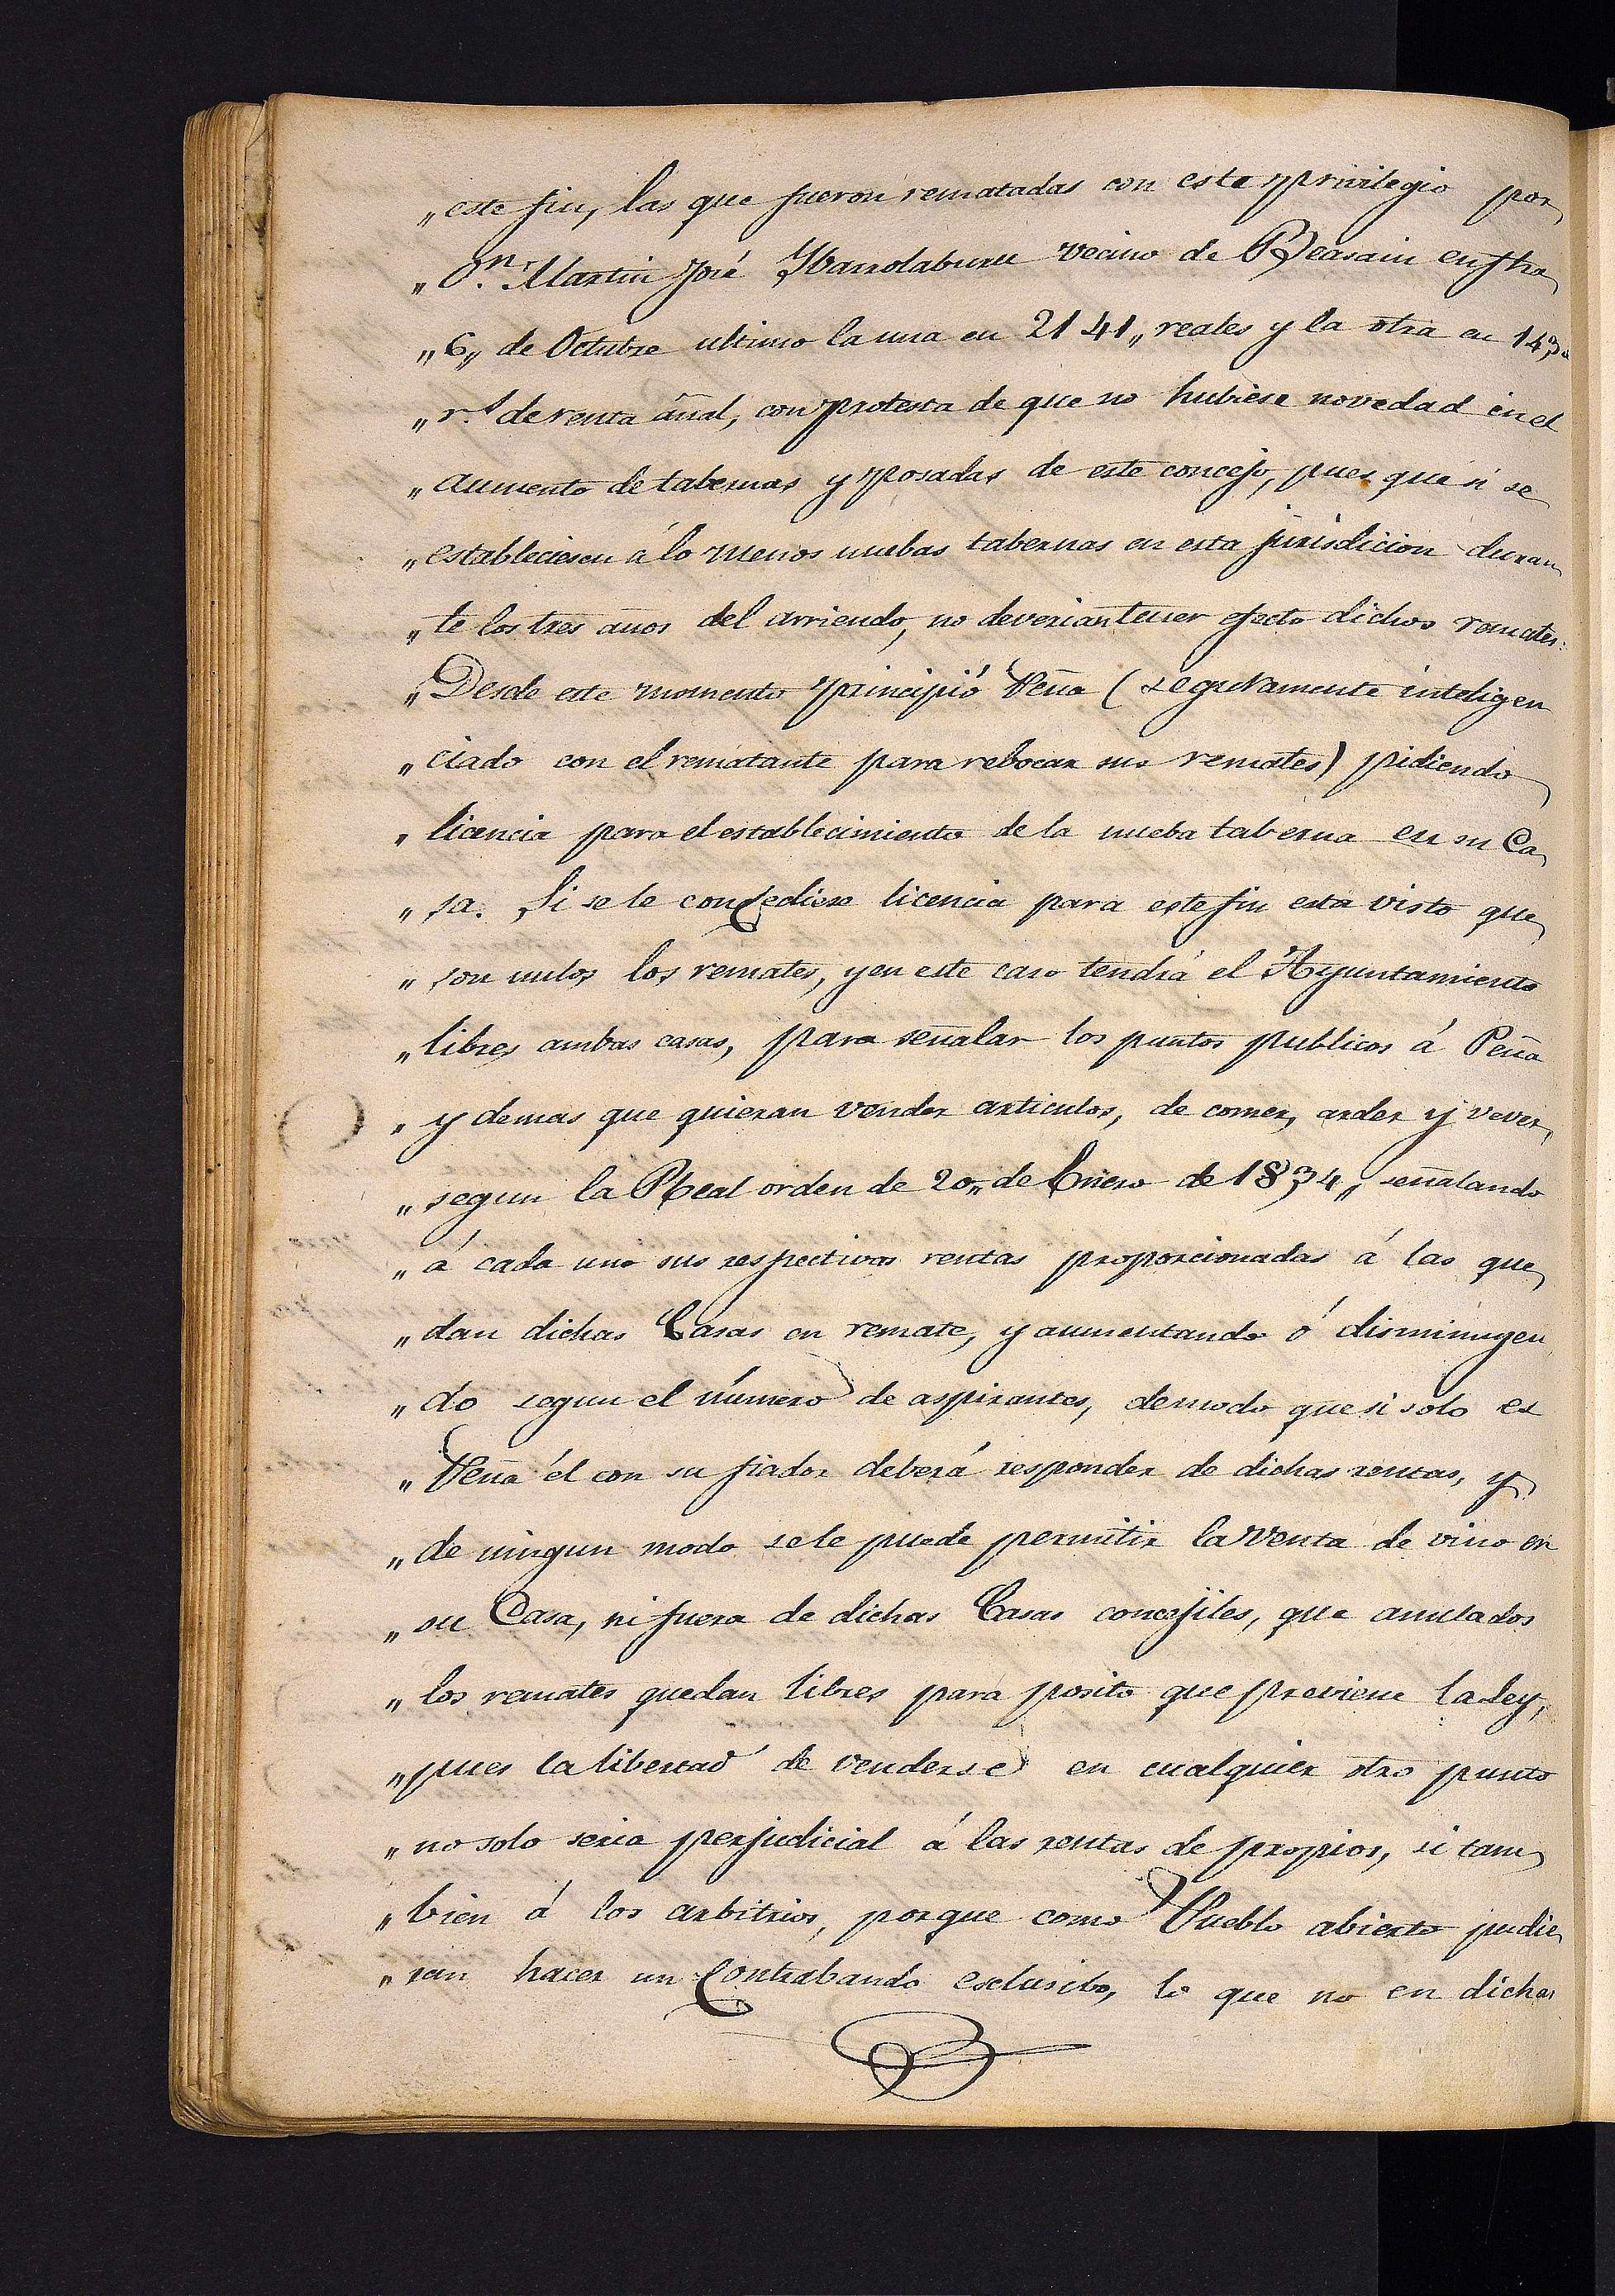 „este fin, las que fueron rematadas con este privilegio por
„Dn. Martin José Ybarrolaburu vecino de Beasain en fha
„6„ de Octubre ultimo la una en 2141„ reales y la otra en
„rs. de renta añal, con protesta de que no hubiese novedad en el
„aumento de tabernas y posadas de este concejo, pues que si se
„estableciesen á lo menos nuebas tabernas en esta jurisdicion duran
„te los tres años del arriendo, no deverian tener efecto dichos remates:
„Desde este momento principió Peña (seguramente inteligen
„ciado con el rematante para rebocar sus remates) pidiendo
„licencia para el establecimiento de la nueba taberna en su Ca
„sa. Si se le concediese licencia para este fin esta visto que
„son nulos los remates, y en este caso tendrá el Ayuntamiento
„libres ambas casas, para señalar los puntos publicos á Peña
„y demas que quieran vender articulos, de comer, arder y vever,
„segun la Real orden de 20„ de Enero de 1834„ señalando
„á cada uno sus respectivas rentas proporcionadas á las que
„dan dichas Casas en remate, y aumentando ó disminuyen
„do segun el número de aspirantes, demodo que si solo es
„Peña él con su fiador deberá responder de dichas rentas, y
„de ningun modo se le puede permitir la venta de vino en
„su Casa, ni fuera de dichas Casas concejiles, que anulados
„los remates quedan libres para posito que previene la Ley,
„pues la libertad de venderse en cualquier otro punto
„no solo seria perjudicial á las rentas de propios, si tam
„bien á los arbitrios, porque como Pueblo abierto pudie
„ran hacer un Contrabando esclusibo, lo que no en dichas